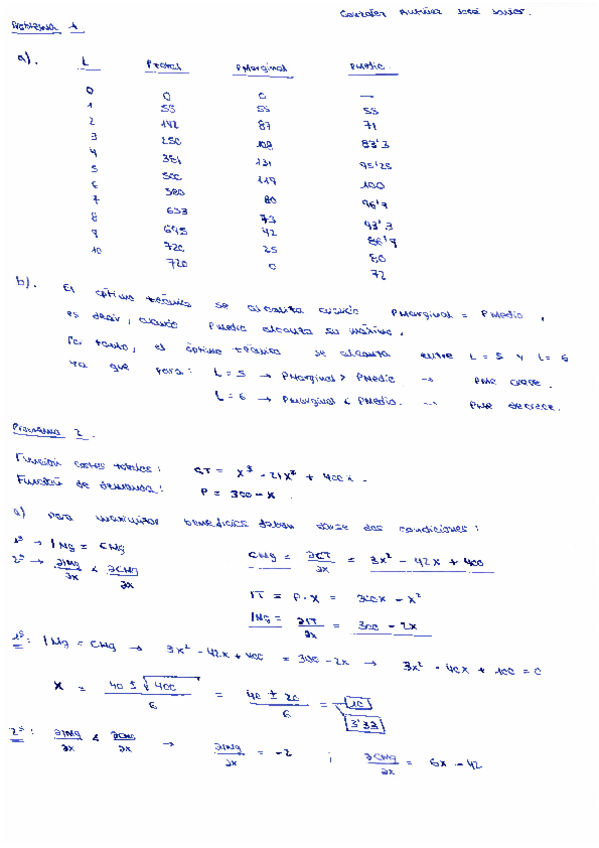 Problema 1
a). L PTotal PMarginal PMedio
0 0 0 —
1 55 55 55
2 142 87 71
3 250 108 83'3
4 381 131 95'25
5 500 119 100
6 580 80 96'7
7 653 73 93'3
8 695 42 86'9
9 720 25 80
10 720 0 72
b). El óptimo técnico se alcanza cuando PMarginal = PMedio,
es decir, cuando PMedio alcanza su máximo.
Por tanto, el óptimo técnico se alcanza entre L = 5 y L = 6
ya que para: L = 5 → PMarginal > PMedio → PMe crece.
L = 6 → PMarginal < PMedio. → PMe decrece.
Problema 2.
Función costes totales: CT = x³ - 21x² + 400x.
Función de demanda: P = 300 - x.
a) Para maximizar beneficios deben darse dos condiciones:
1ª → IMg = CMg
2ª → ∂IMg/∂x < ∂CMg/∂x
CMg = ∂CT/∂x = 3x² - 42x + 400
IT = P · x = 300x - x²
IMg = ∂IT/∂x = 300 - 2x
1ª: IMg = CMg → 3x² - 42x + 400 = 300 - 2x → 3x² - 40x + 100 = 0
x = (40 ± √400)/6 = (40 ± 20)/6 = 10
3'33
2ª: ∂IMg/∂x < ∂CMg/∂x → ∂IMg/∂x = -2 ; ∂CMg/∂x = 6x - 42